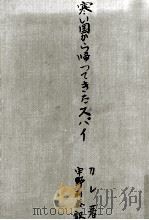 寒い国から帰ってきたスパイ
カレ 著
宇野利 訳